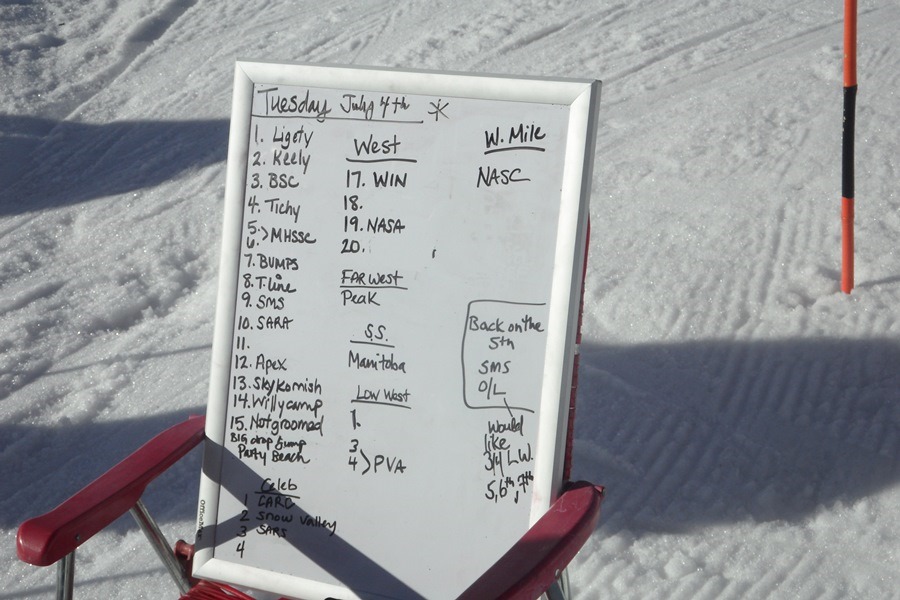 Tuesday July 4th *
1. Ligety
2. Keely
3. BSC
4. Tichy
5. > MHSSC
6.
7. BUMPS
8. T.line
9. SMS
10. SARA
11.
12. Apex
13. Skykomish
14. Willycamp
15. Notgroomed
BIG drop bump
Party Beach
Celeb
1 CARC
2 Snow Valley
3 SARS
4
West
17. WIN
18.
19. NASA
20.
FAR West
Peak
S.S.
Manitoba
Low West
1.
3
4 > PVA
W. Mile
NASC
Back on the
5th
SMS
O/L
Would
like
3/4 L.W.
5, 6th, 7th